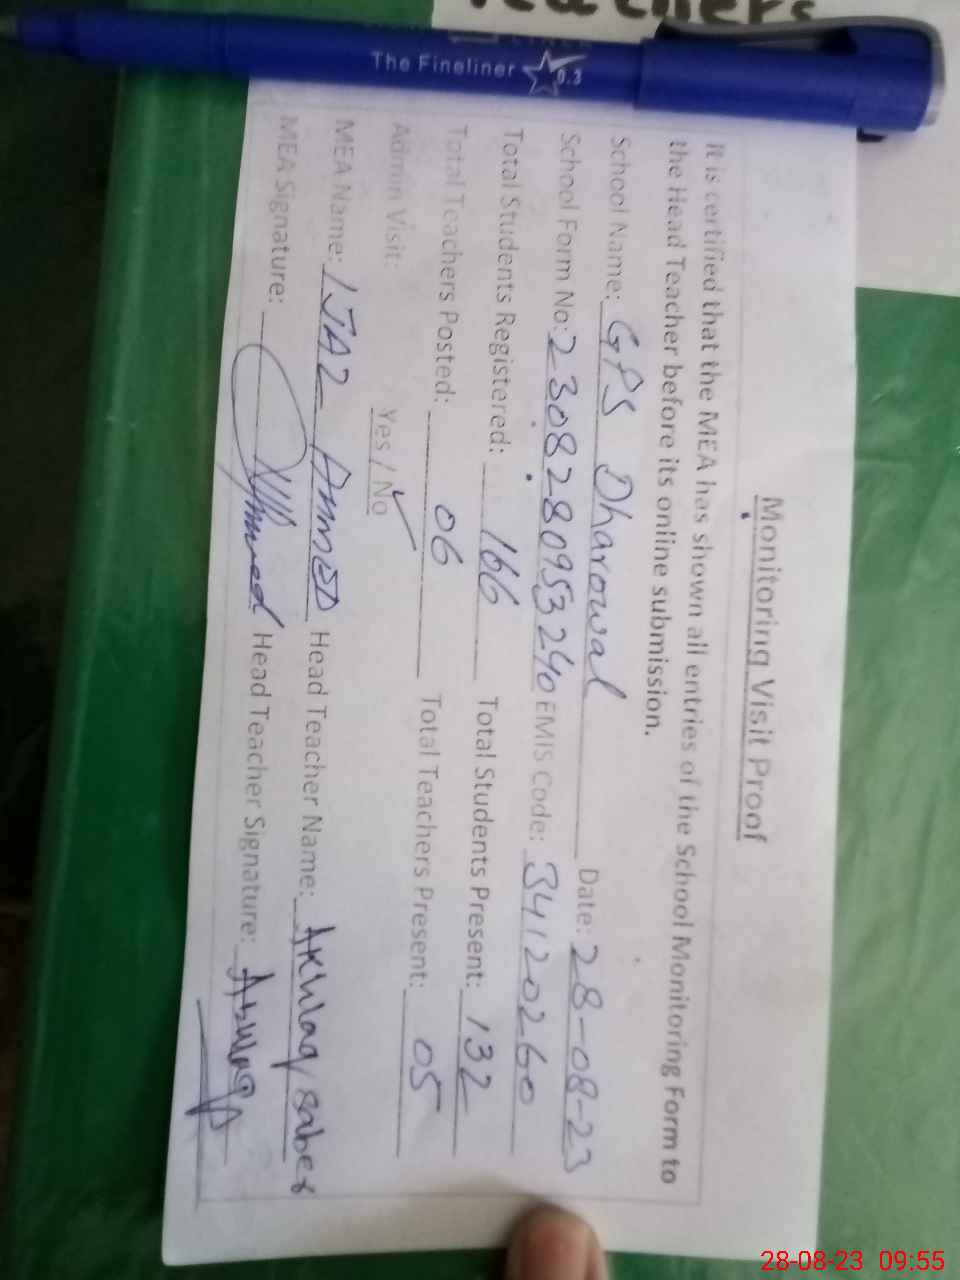 Teachers
The Fineliner 0.3
Monitoring Visit Proof
It is certified that the MEA has shown all entries of the School Monitoring Form to
the Head Teacher before its online submission.
School Name: GPS Dharowal Date: 28-08-23
School Form No: 2308280953240 EMIS Code: 34120260
Total Students Registered: 166 Total Students Present: 132
Total Teachers Posted: 06 Total Teachers Present: 05
Admin Visit: Yes / No
MEA Name: IJAZ AHMED Head Teacher Name: Akhlaq Saber
MEA Signature: Ahmed Head Teacher Signature: Akhlaq
28-08-23 09:55